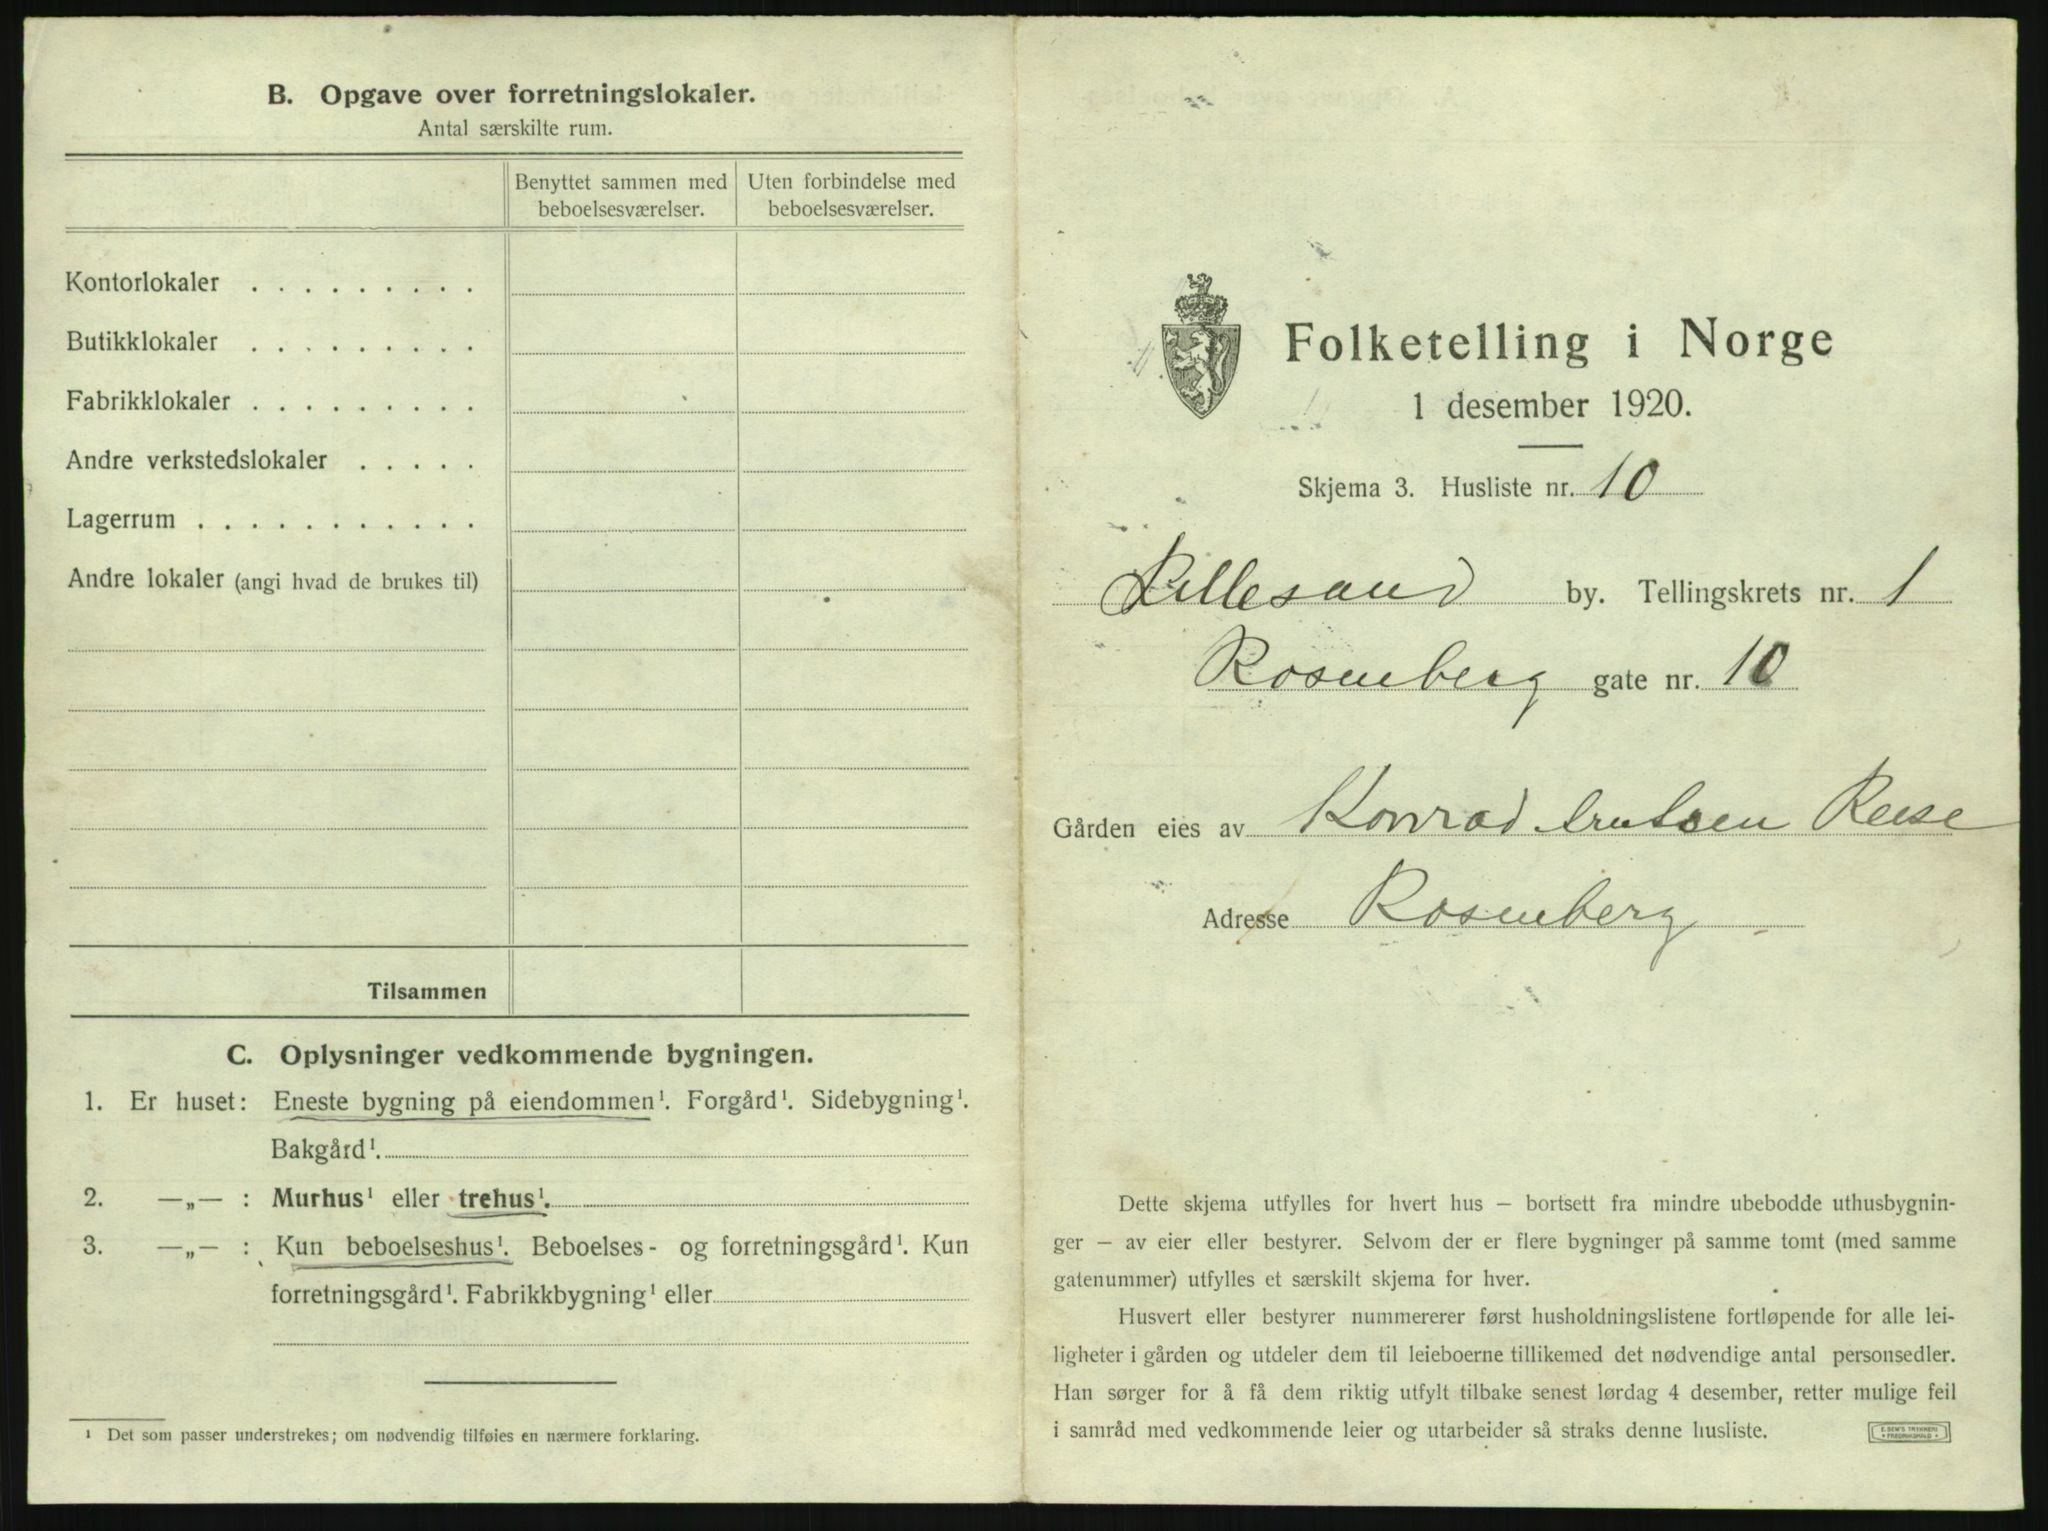 B. Opgave over forretningslokaler.
Antal særskilte rum.
Benyttet sammen med beboelsesværelser.
Uten forbindelse med beboelsesværelser.
Kontorlokaler . . . . . . . . .
Butikklokaler . . . . . . . . .
Fabrikklokaler . . . . . . . . .
Andre verkstedslokaler . . . . .
Lagerrum . . . . . . . . . . .
Andre lokaler (angi hvad de brukes til)
Tilsammen
C. Oplysninger vedkommende bygningen.
1. Er huset: Eneste bygning på eiendommen¹. Forgård¹. Sidebygning¹.
Bakgård¹.
2. —„— : Murhus¹ eller trehus¹.
3. —„— : Kun beboelseshus¹. Beboelses- og forretningsgård¹. Kun
forretningsgård¹. Fabrikkbygning¹ eller
¹ Det som passer understrekes; om nødvendig tilføies en nærmere forklaring.
Folketelling i Norge
1 desember 1920.
Skjema 3. Husliste nr. 10
Lillesand by. Tellingskrets nr. 1
Rosenberg gate nr. 10
Gården eies av Konrad
Adresse Rosenberg
Dette skjema utfylles for hvert hus – bortsett fra mindre ubebodde uthusbygnin-
ger – av eier eller bestyrer. Selvom der er flere bygninger på samme tomt (med samme
gatenummer) utfylles et særskilt skjema for hver.
Husvert eller bestyrer nummererer først husholdningslistene fortløpende for alle lei-
ligheter i gården og utdeler dem til leieboerne tillikemed det nødvendige antal personsedler.
Han sørger for å få dem riktig utfylt tilbake senest lørdag 4 desember, retter mulige feil
i samråd med vedkommende leier og utarbeider så straks denne husliste.
E. SEM'S TRYKKERI
FREDRIKSHALD